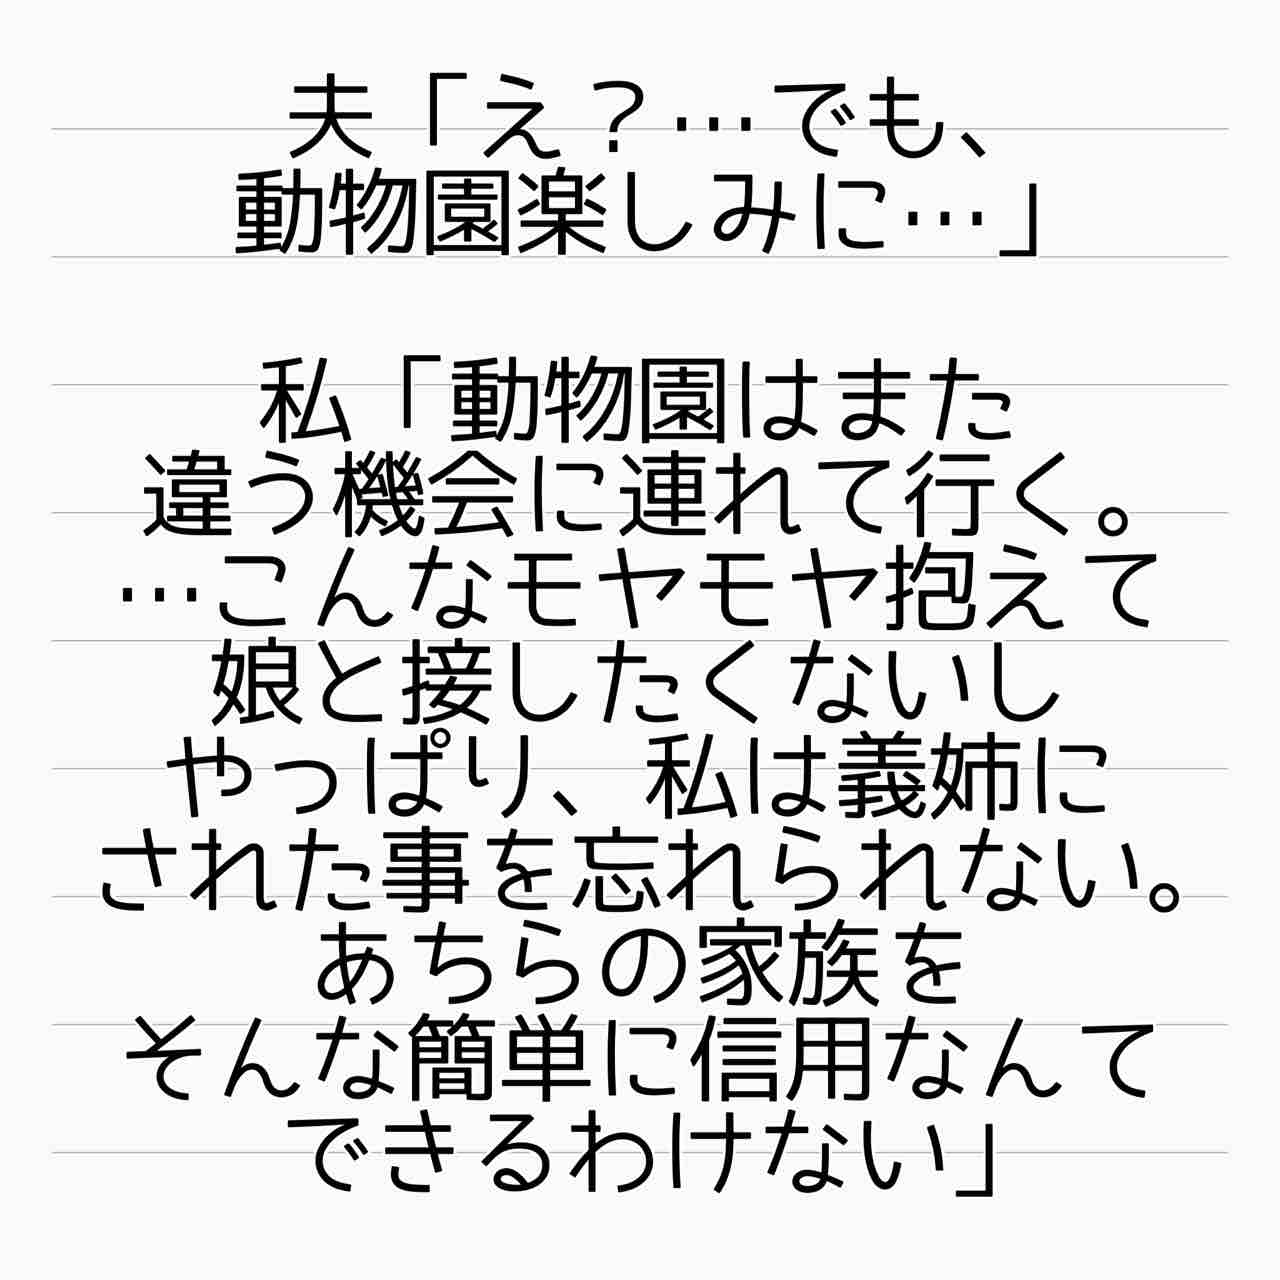 夫「え？…でも、
動物園楽しみに…」
私「動物園はまた
違う機会に連れて行く。
…こんなモヤモヤ抱えて
娘と接したくないし
やっぱり、私は義姉に
された事を忘れられない。
あちらの家族を
そんな簡単に信用なんて
できるわけない」